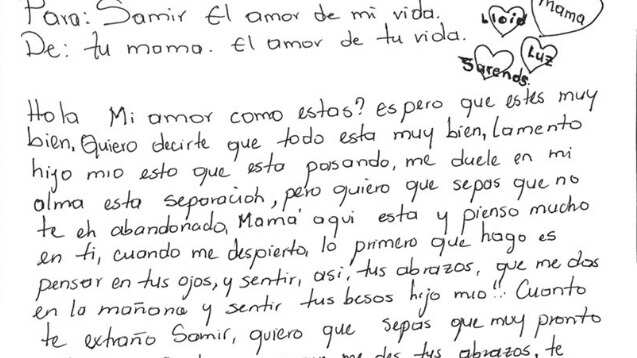 Para: Samir El amor de mi vida.
De: tu mama. El amor de tu vida.
Lloid
mama
Luz
Sarends.
Hola Mi amor como estas? espero que estes muy
bien, Quiero decirte que todo esta muy bien, Lamento
hijo mio esto que esta pasando, me duele en mi
alma esta separacion, pero quiero que sepas que no
te eh abandonado, Mamá aqui esta y pienso mucho
en ti, cuando me despierto, lo primero que hago es
pensar en tus ojos, y sentir, asi, tus abrazos, que me das
en la mañana y sentir tus besos hijo mio!! Cuanto
te extraño Samir, quiero que sepas que muy pronto
me des tus abrazos, te